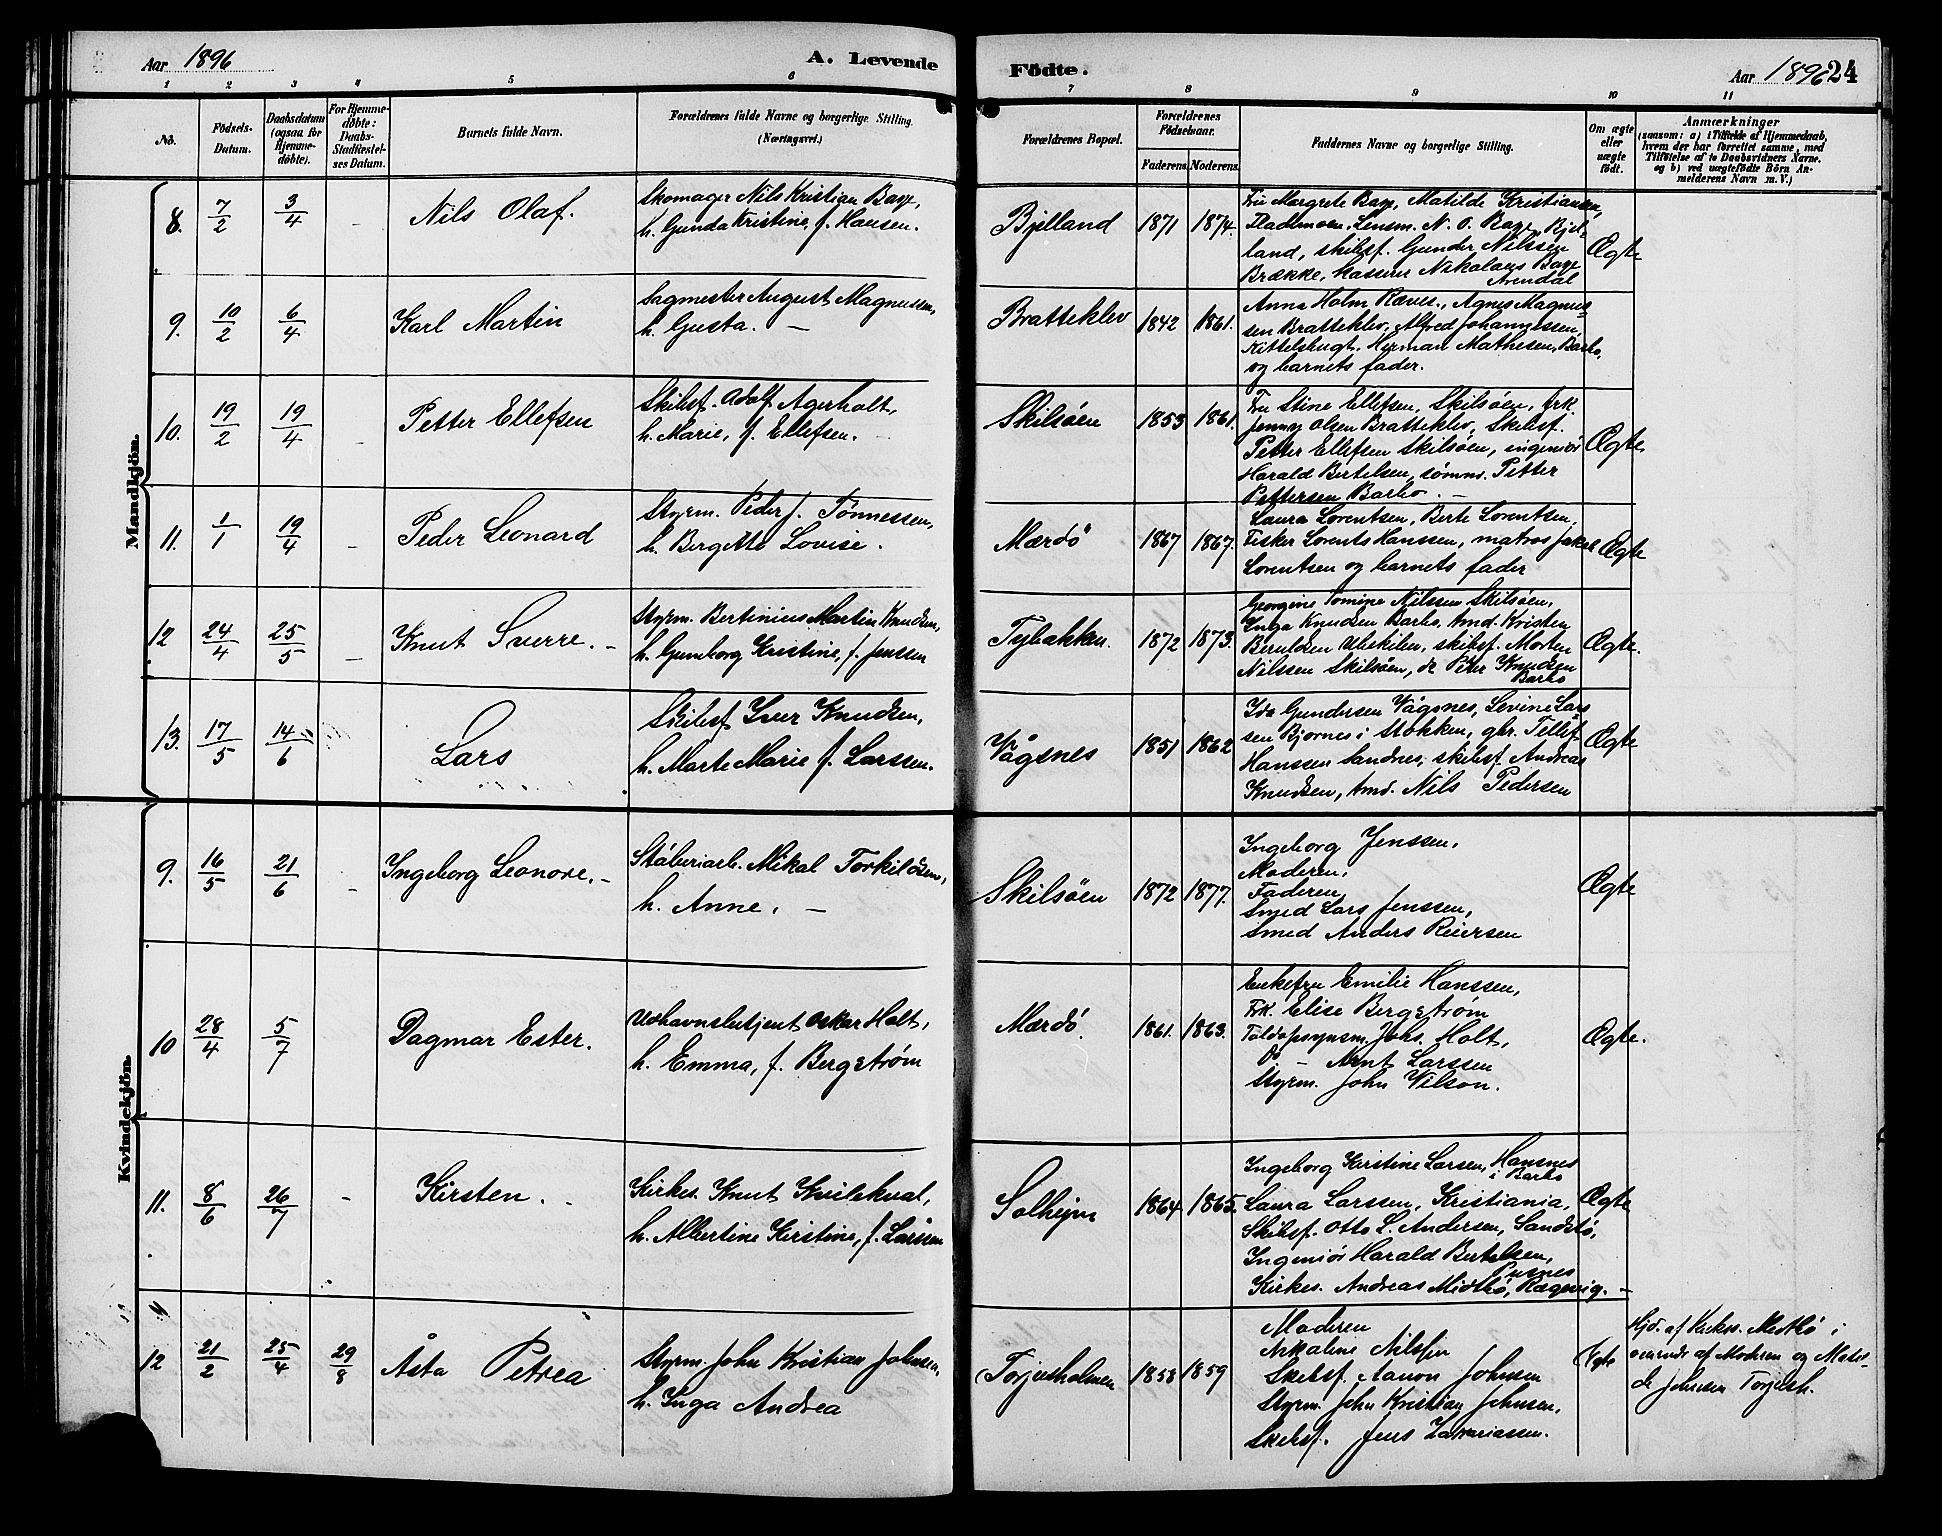 Aar 1896
A. Levende
Fødte.
Aar 1896 24
1 2 3 4 5 6 7 8 9 10 11
No.
Fødsels-
Datum.
Daabsdatum
(ogsaa for
Hjemme-
døbte).
For Hjemme-
døbte:
Daabs-
Stadfæstel-
ses Datum.
Barnets fulde Navn.
Forældrenes fulde Navne og borgerlige Stilling.
(Næringsvei.)
Forældrenes Bopæl.
Forældrenes
Fødselsaar.
Faderens. Moderens.
Faddernes Navne og borgerlige Stilling.
Om ægte
eller
uægte
født.
Anmærkninger
(saasom: a) i Tilfælde af Hjemmedaab,
hvem der har forrettet samme, med
Tilføielse af to Daabsvidners Navne.
og b) ved uægtefødte Børn An-
melderens Navn m. V.)
Mandkjøn.
8. 7/2 3/4 - Nils Olaf.
Skomager Nils Kristian Bage,
h. Gunda Kristine, f. Hansen.
Bjelland 1871 1874.
Fru Margrete Bage, Matilde Kristiansen,
Lensm. N. O. Bage, Bjel-
land, skibsf. Gunder Nilssen
Brække, kasserer Nikolaus Bage
Arendal
Ægte
9. 10/2 6/4 Karl Martin
Sagmester August Magnussen,
h. Gusta. -
Bratteklev 1842 1861.
Anna Holm Ræves., Agnes Magnus-
sen Bratteklev, Alfred Johannessen,
Kittelsbugt, Herman Mathesen, Barbo,
og barnets fader.
10. 19/2 19/4 - Petter Ellefsen
Skibsf. Adolf Agerholt,
h. Marie, f. Ellefsen. -
Skilsøen 1853 1861.
Fru Stine Ellefsen, Skilsøen, frk.
Jenny Olsen Bratteklev, Skibsf.
Petter Ellefsen Skilsøen, ingeniør
Harald Bertelsen, sømm. Petter
Pettersen Barbo. -
Ægte
11. 1/1 19/4 - Peder Leonard
Styrm. Peder J. Tønnessen,
h. Bergette Lovise.
Mærdø 1867 1867.
Laura Lorentsen, Berte Lorentsen,
Fisker Lorents Hanssen, matros Jakob
Lorentsen og barnets fader
Ægte
12 24/4 25/5 - Knut Sverre. -
Styrm. Bertinius Martin Knudsen,
h. Gunborg Kristine, f. Jenssen
Tybakken. 1872 1873.
Georgine Tomine Nilssen Skilsøen,
Inga Knudsen Barbo, tmd. Kristen
Beruldsen Ubekilen, skibsf. Morten
Nilssen Skilsøen, do Peter Knudsen
Barbo
Ægte.
13. 17/5 14/6 Lars
Skibsf Iver Knudsen,
h. Marte Marie f. Larssen.
Vågsnes 1851 1862
Ida Gundersen Vågsnes, Levine Lars-
sen Bjornes i Stokken, gbr. Tellef
Hanssen Sandnes, skibsf. Andreas
Knudsen, tmd. Nils Pedersen
Ægte
Kvindekjøn.
9. 16/5 21/6 - Ingeborg Leonore. -
Ståberiarb. Mikal Torkildsen,
h. Anne. -
Skilsøen 1872 1877.
Ingeborg Jenssen,
Moderen,
Faderen,
Smed Lars Jenssen,
Smed Anders Reiersen
Ægte
10 28/4 5/7 Dagmar Ester.
Udhavnsbetjent Oskar Holt,
h. Emma, f. Bergstrøm
Mærdø. 1861. 1863.
Enkefru Emilie Hanssen,
Frk. Elise Bergstrøm
Toldopsynsm. Johs. Holt,
Do - Arnt Larssen
Styrm. John Wilson.
Ægte.
11. 8/6 26/7 - Kirsten. -
Kirkes. Knut Kvilekval,
h. Albertine Kirstine, f. Larssen
Solhejm 1864 1865.
Ingeborg Kirstine Larsen, Hansnes
i Barbo
Laura Larssen, Kristiania,
Skibsf. Otto L. Andersen, Sandstø,
Ingeniør Harald Bertelsen,
Pusnes
Kirkes. Andreas Midtbø, Rægevig. -
Ægte
12 21/2 25/4 29/8 Åsta Petrea
Styrm. John Kristian Johnsen,
h. Inga Andrea
Torjusholmen 1858 1859
Moderen
Nikoline Nilssen
Skibsf. Aanon Johnsen
Styrm. John Kristian Johnsen,
Skibsf. Jens Zakariassen.
Ægte
Hjd. af Kirkes. Medbø i
overvær af Moderen og Matil-
de Johnsen Torjush.